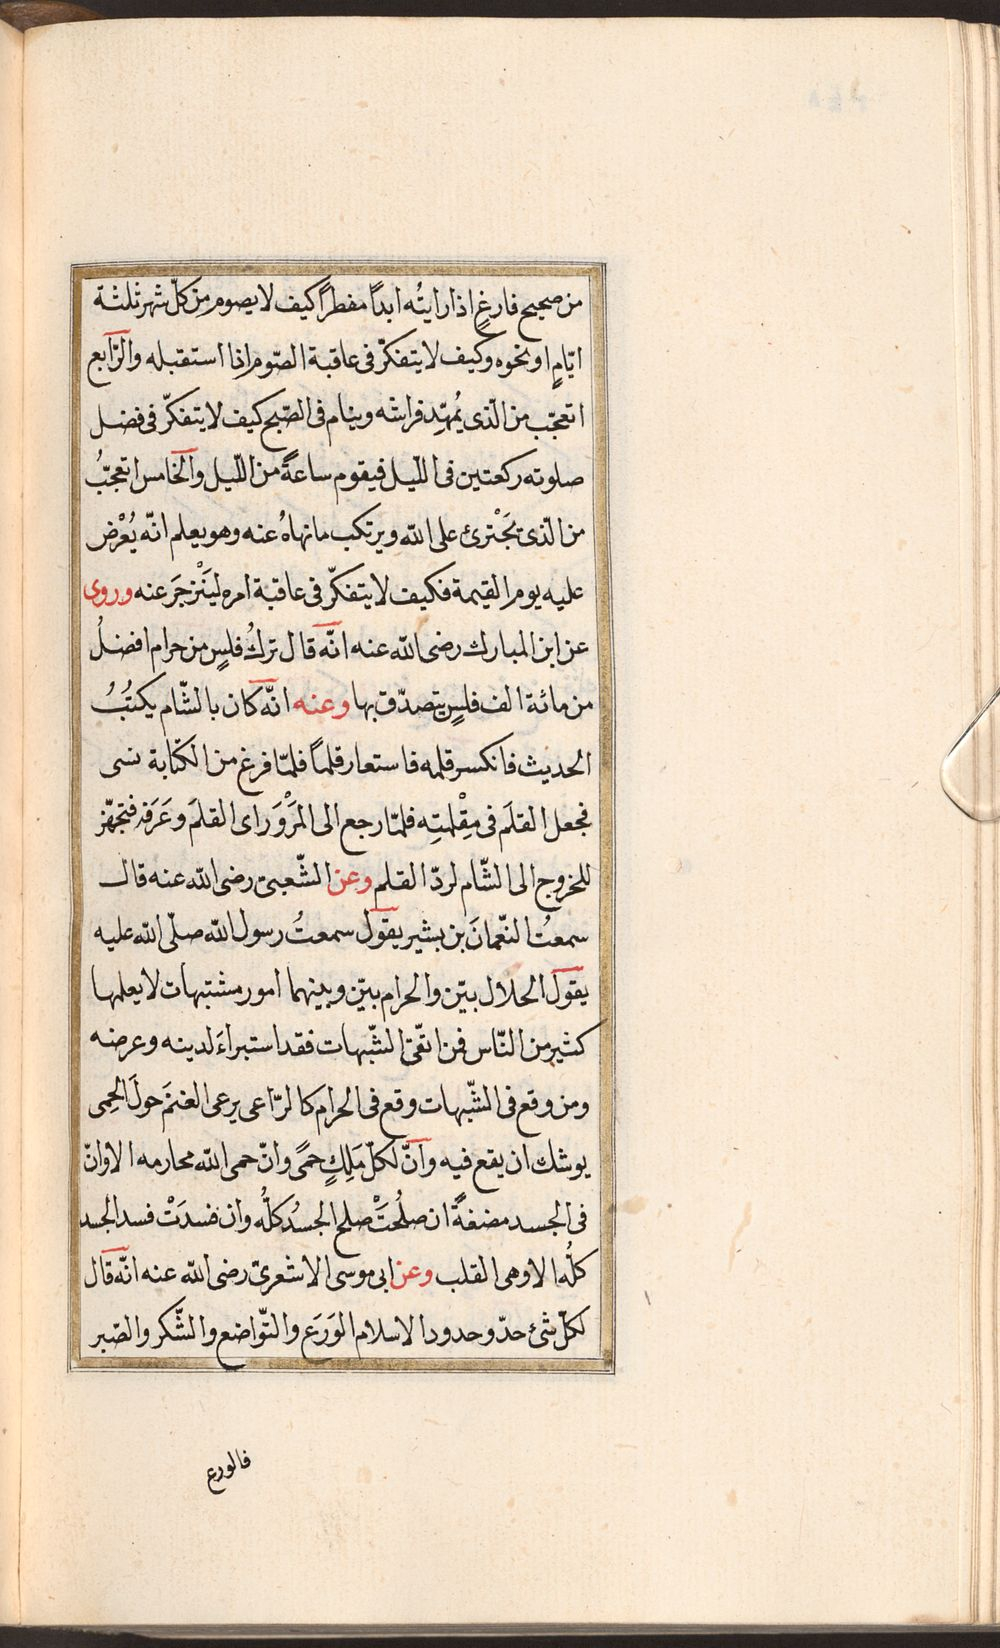 من صحيح فارغٍ اذا رايتُه ابداً مفطراً كيف لا يصوم من كلّ شهر ثلثة
ايّامٍ او نحوه وكيف لا يتفكّر فى عاقبة الصّوم اذا استقبله والرّابع
اتعجّب من الّذى يُمهّد فراشه وينام فى الصّبح كيف لا يتفكّر فى فضل
صلوته ركعتين فى اللّيل فيقوم ساعةً من اللّيل والخامس اتعجّبُ
من الّذى يَجْترئ على الله ويرتكب ما نهاهُ عنه وهو يعلم انّه يُعْرض
عليه يوم القيمة فكيف لا يتفكّر فى عاقبة امره ليَنْزجَر عنه وروى
عن ابن المبارك رضى الله عنه انّه قال تركُ فلسٍ من حرام افضلُ
من مائة الف فلسٍ يتصدّق بها وعنه انّه كان بالشّام يكتُبُ
الحديث فانكسر قلمه فاستعار قلماً فلمّا فرغ من الكتابة نسى
فجعل القلَم فى مِقْلمتِه فلمّا رجع الى المَرْوَ راى القلمَ وعَرَفه فتجهّز
للخروج الى الشّام لردّ القلم وعن الشّعبىّ رضى الله عنه قال
سمعتُ النّعمانَ بن بشير يقول سمعتُ رسول الله صلّى الله عليه
يقول الحلال بيّن والحرام بيّن وبينهما امور مشتبهات لا يعلمها
كثير من النّاس فمن اتّقى الشّبهات فقد استبراءَ لدينه وعرضه
ومن وقع فى الشّبهات وقع فى الحرام كالرّاعى يرعى الغنمَ حولَ الحِمى
يوشك ان يقع فيه وانّ لكلّ مَلِكٍ حمًى وانّ حمى الله محارمه الا وانّ
فى الجسد مضغةً ان صلُحتْ صلح الجسدُ كلُّه وان فسدَتْ فسد الجسد
كلُّه الا وهى القلب وعن ابى موسى الاشعرىّ رضى الله عنه انّه قال
لكلّ شئ حدّ وحدود الاسلام الوَرَع والتّواضع والشّكر والصّبر
فالورع